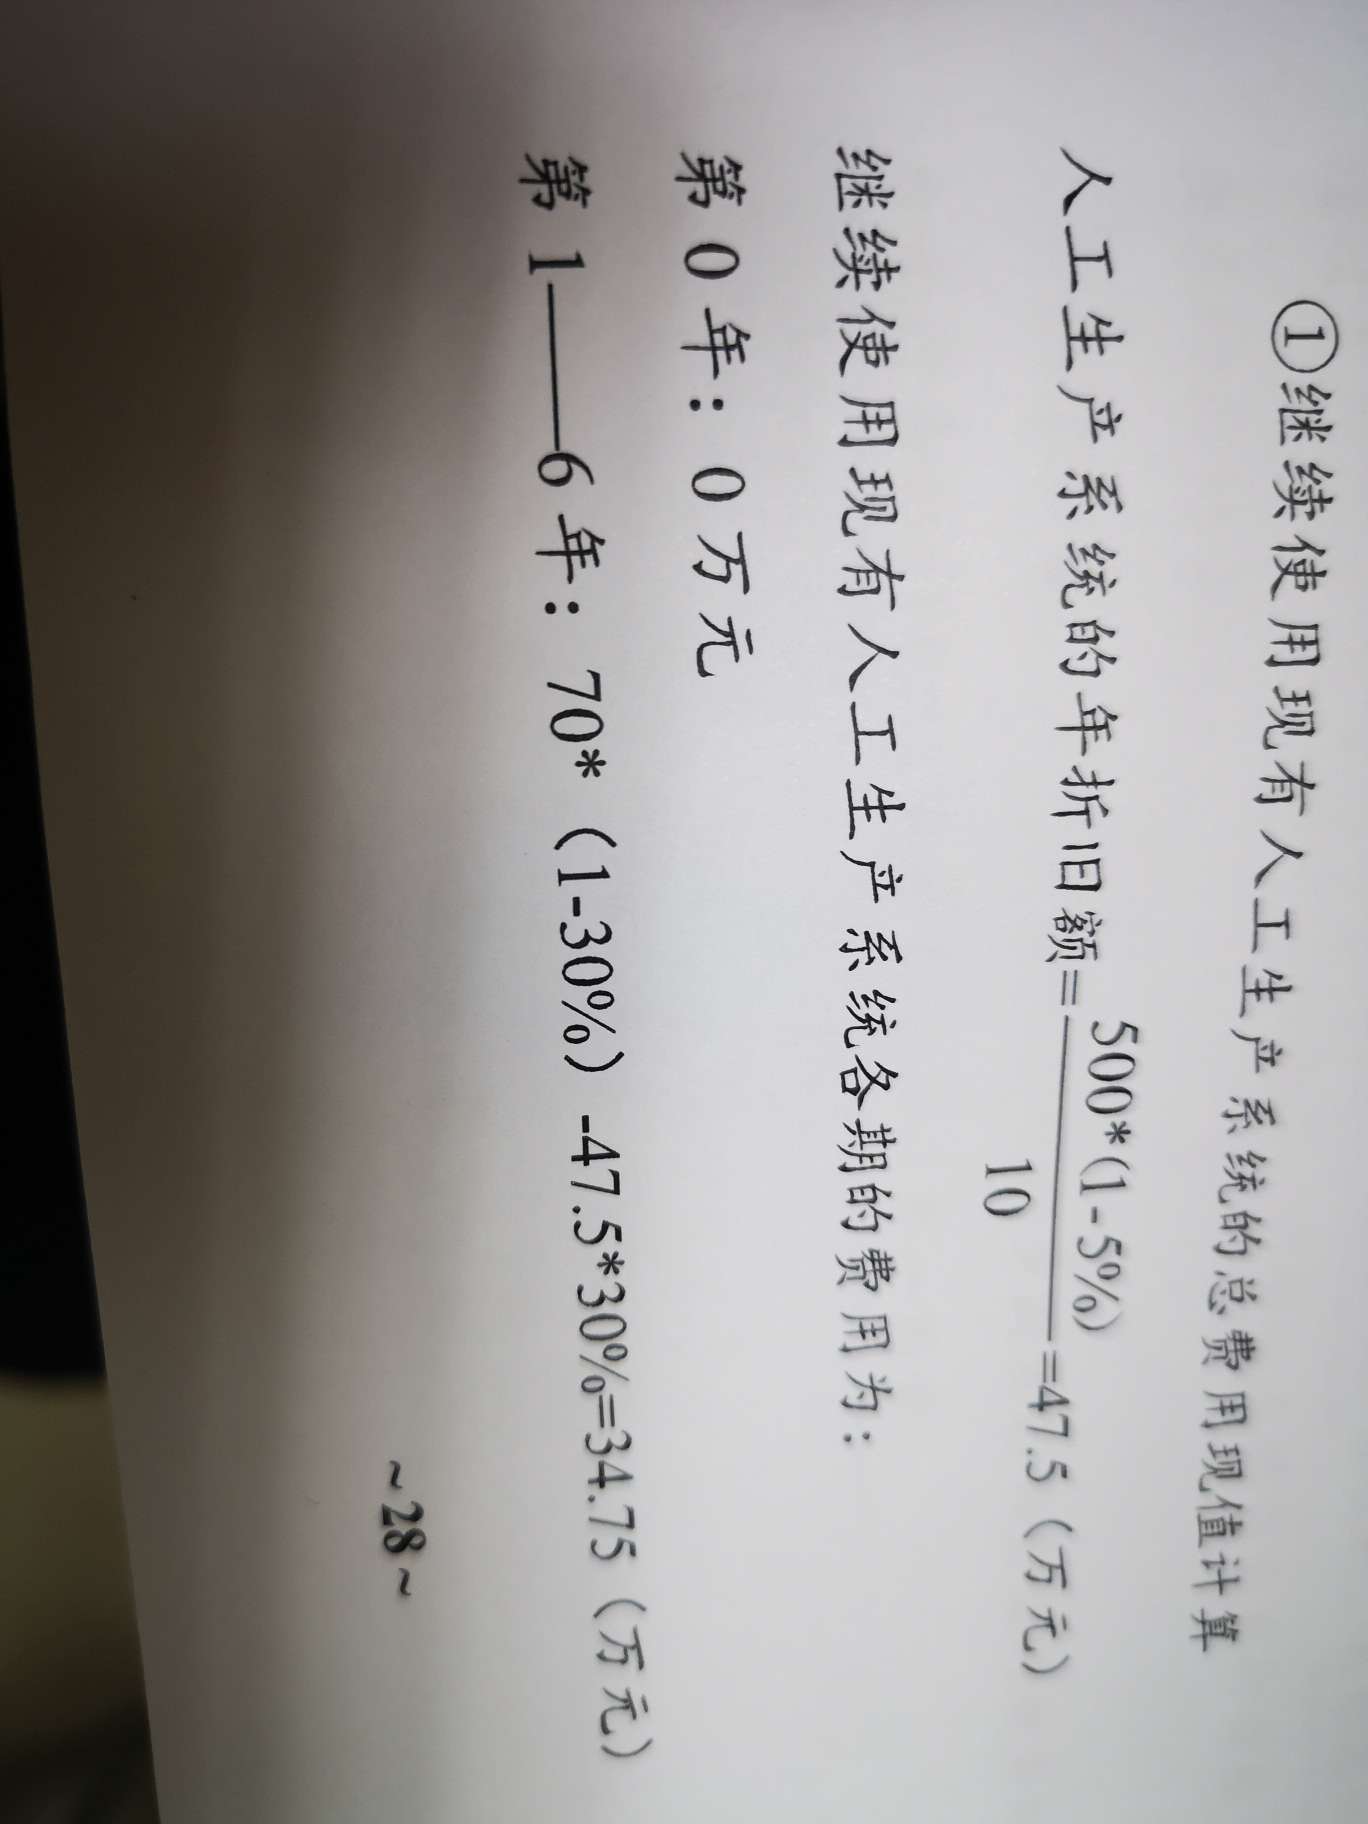 ①继续使用现有人工生产系统的总费用现值计算
人工生产系统的年折旧额=500*(1-5%)/10=47.5（万元）
继续使用现有人工生产系统各期的费用为：
第0年：0万元
第1——6年：70*（1-30%）-47.5*30%=34.75（万元）
~28~